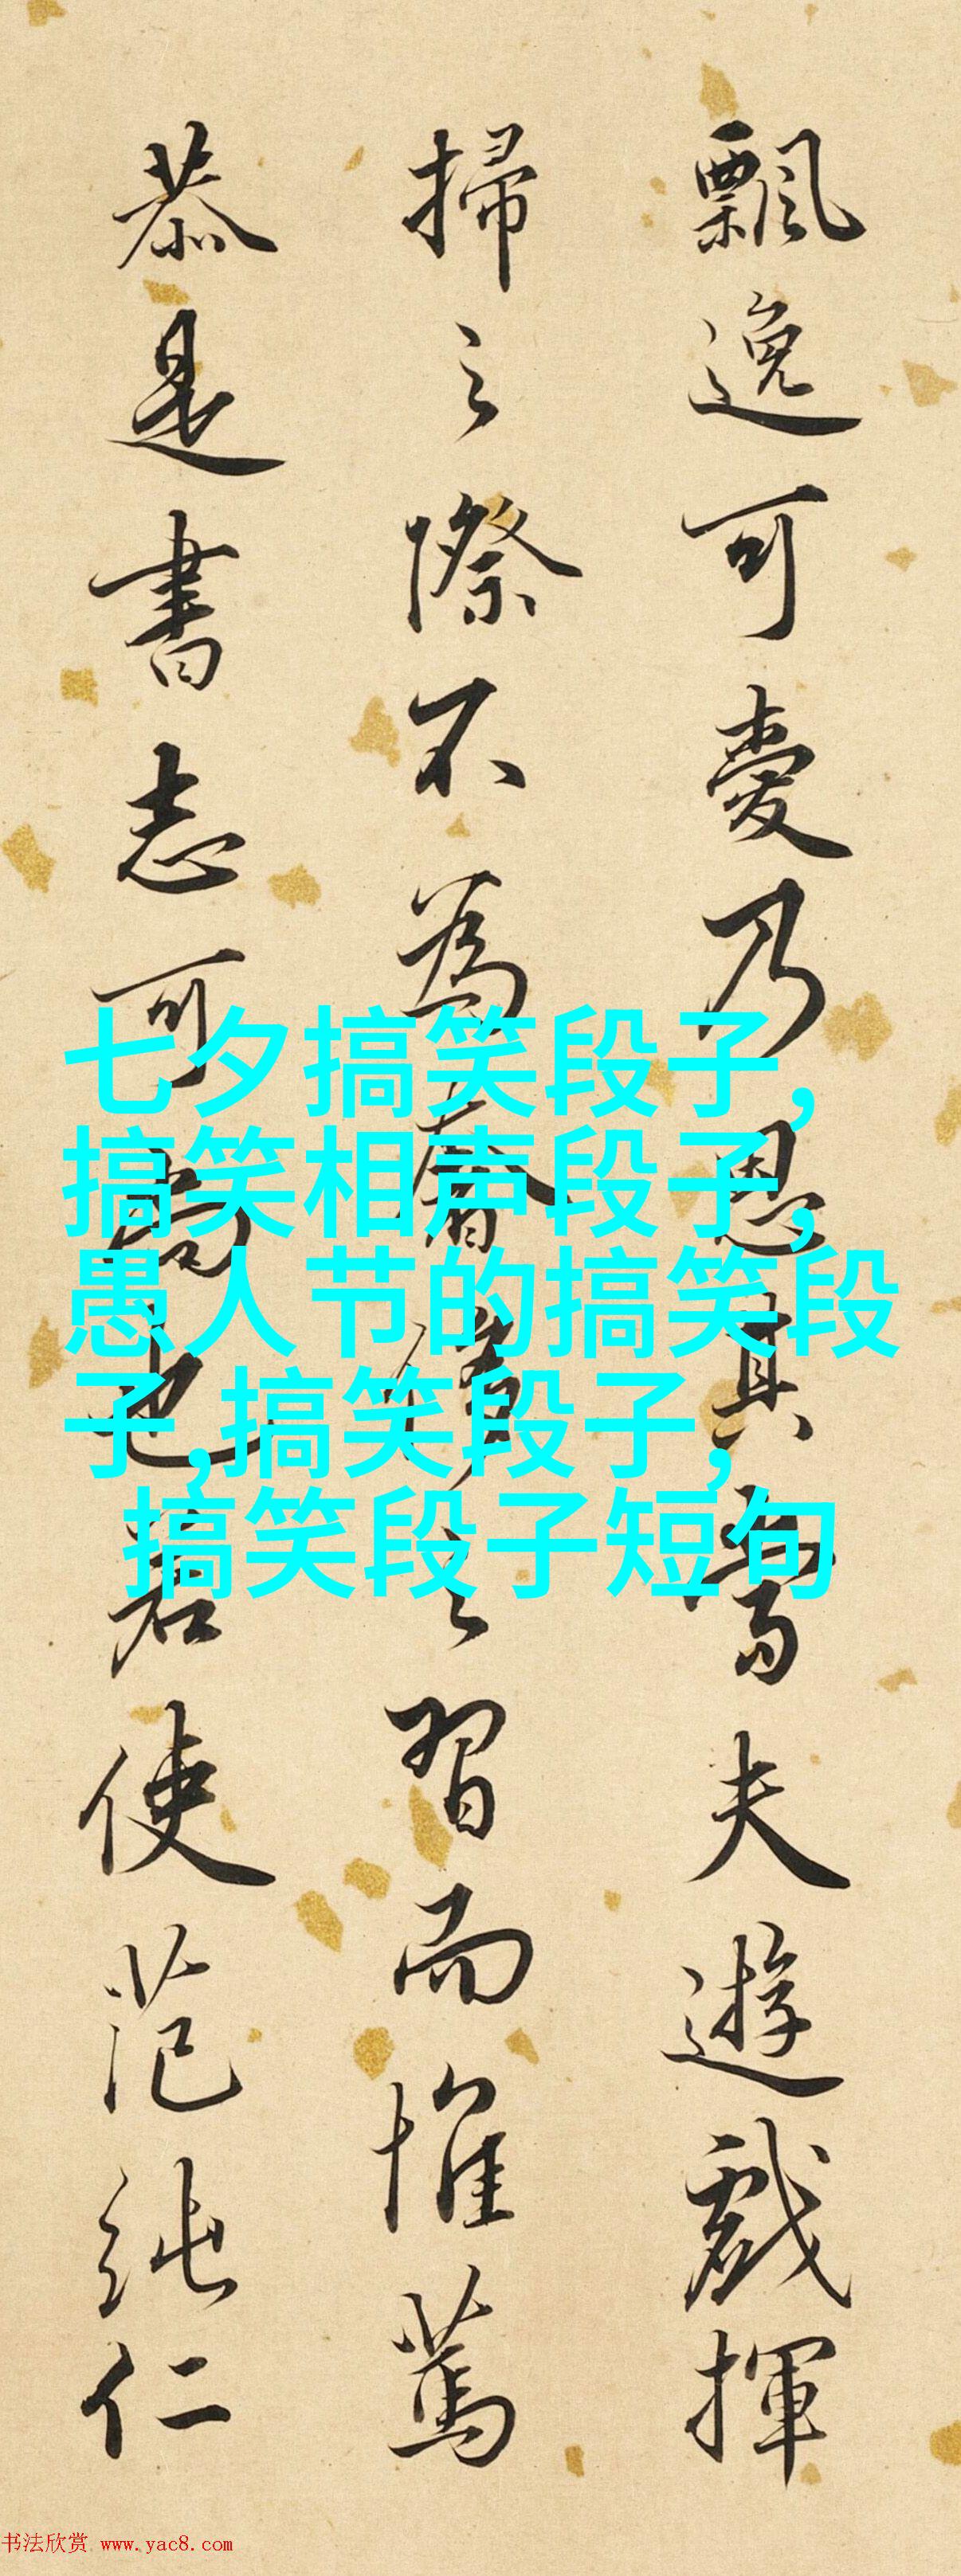 飄逸可愛乃思其寫夫遊戲揮
掃之際不為之習而惟篤
恭是書志可也若使范純仁
七夕搞笑段子,
搞笑相声段子,
愚人节的搞笑段
子,搞笑段子,
搞笑段子短句
书法欣赏 www.yac8.com